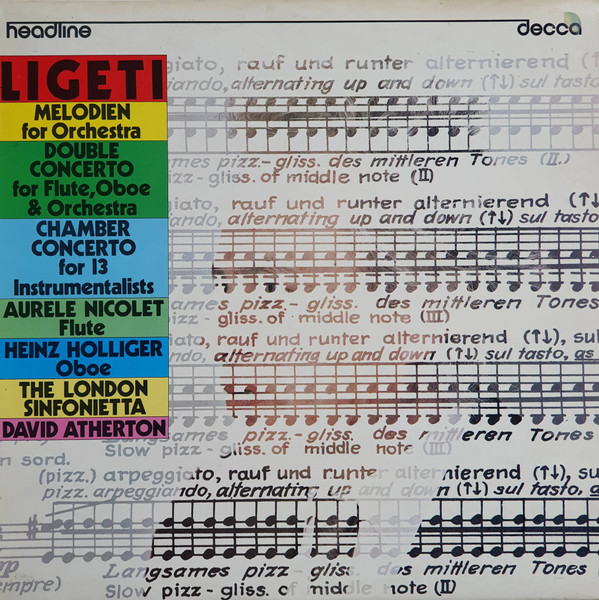 headline
decca
LIGETI
MELODIEN
for Orchestra
DOUBLE
CONCERTO
for Flute, Oboe
& Orchestra
CHAMBER
CONCERTO
for 13
Instrumentalists
AURELE NICOLET
Flute
HEINZ HOLLIGER
Oboe
THE LONDON
SINFONIETTA
DAVID ATHERTON
giato, rauf und runter alternierend (↑↓)
iando, alternating up and down (↑↓) sul tasto
ames pizz.-gliss. des mittleren Tones (II.)
izz-gliss. of middle note (II)
giato, rauf und runter alternierend (↑↓
iando, alternating up and down (↑↓) sul tasto
ames pizz.-gliss. des mittleren Tones
izz-gliss. of middle note (III)
iato, rauf und runter alternierend (↑↓), su
ando, alternating up and down (↑↓) sul tasto, as
Langsames pizz.-gliss. des mittleren Tones
Slow pizz-gliss. of middle note (III)
n sord.
(pizz.) arpeggiato, rauf und runter alternierend (↑↓), su
pizz. arpeggiando, alternating up and down (↑↓) sul tasto, a
pp
Langsames pizz-gliss. des mittleren Tones
empre)
Slow pizz-gliss. of middle note (II)